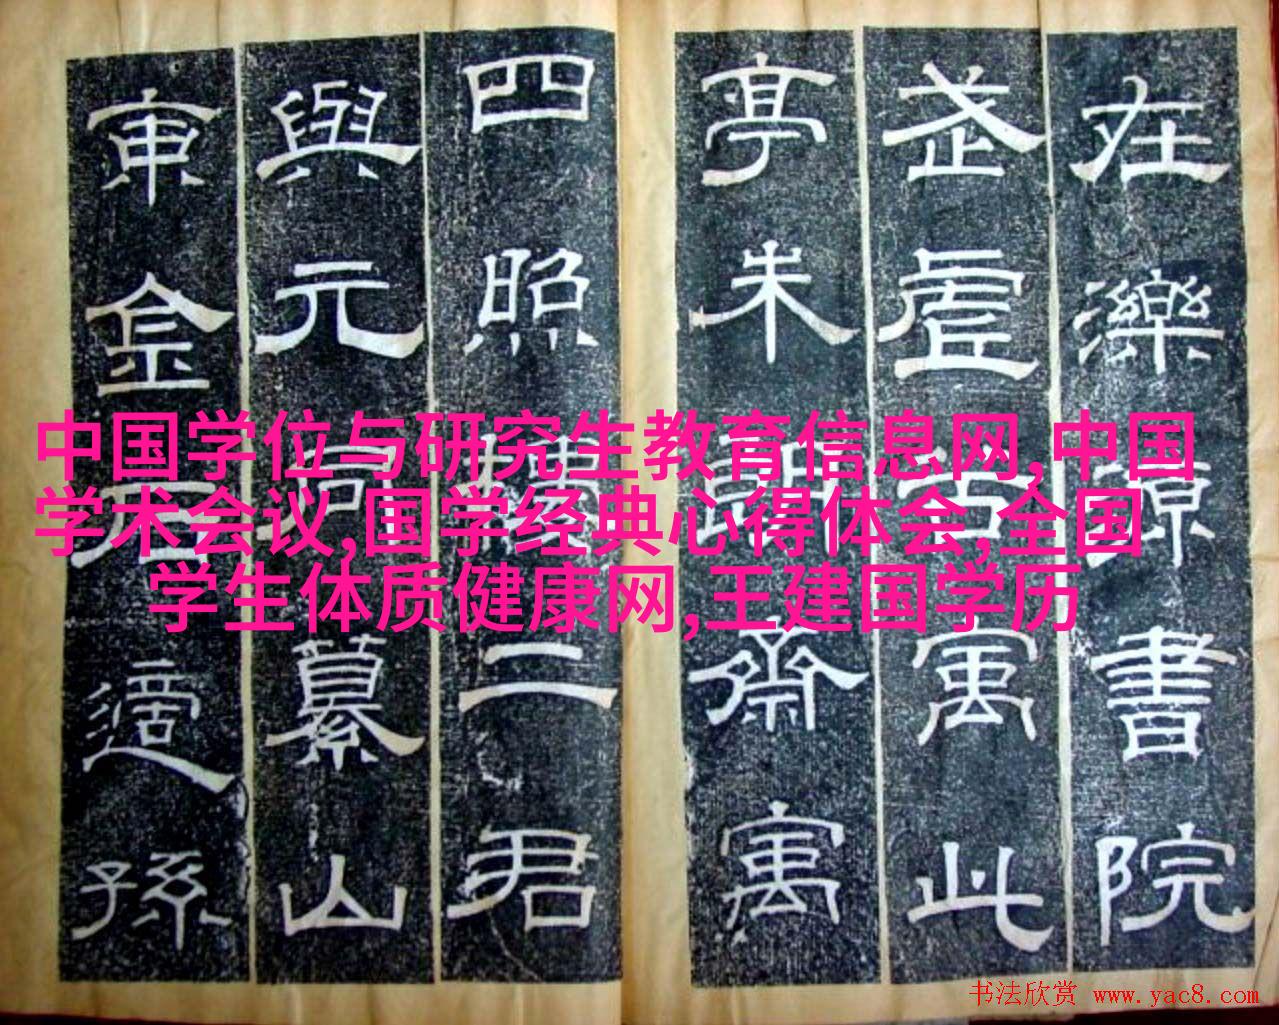 在濼源書院
武虛寓此
亭朱朗齋寓
四照樓二君
與元同纂山
東金石適孫
中国学位与研究生教育信息网,中国
学术会议,国学经典心得体会,全国
学生体质健康网,王建国学历
书法欣赏 www.yac8.com